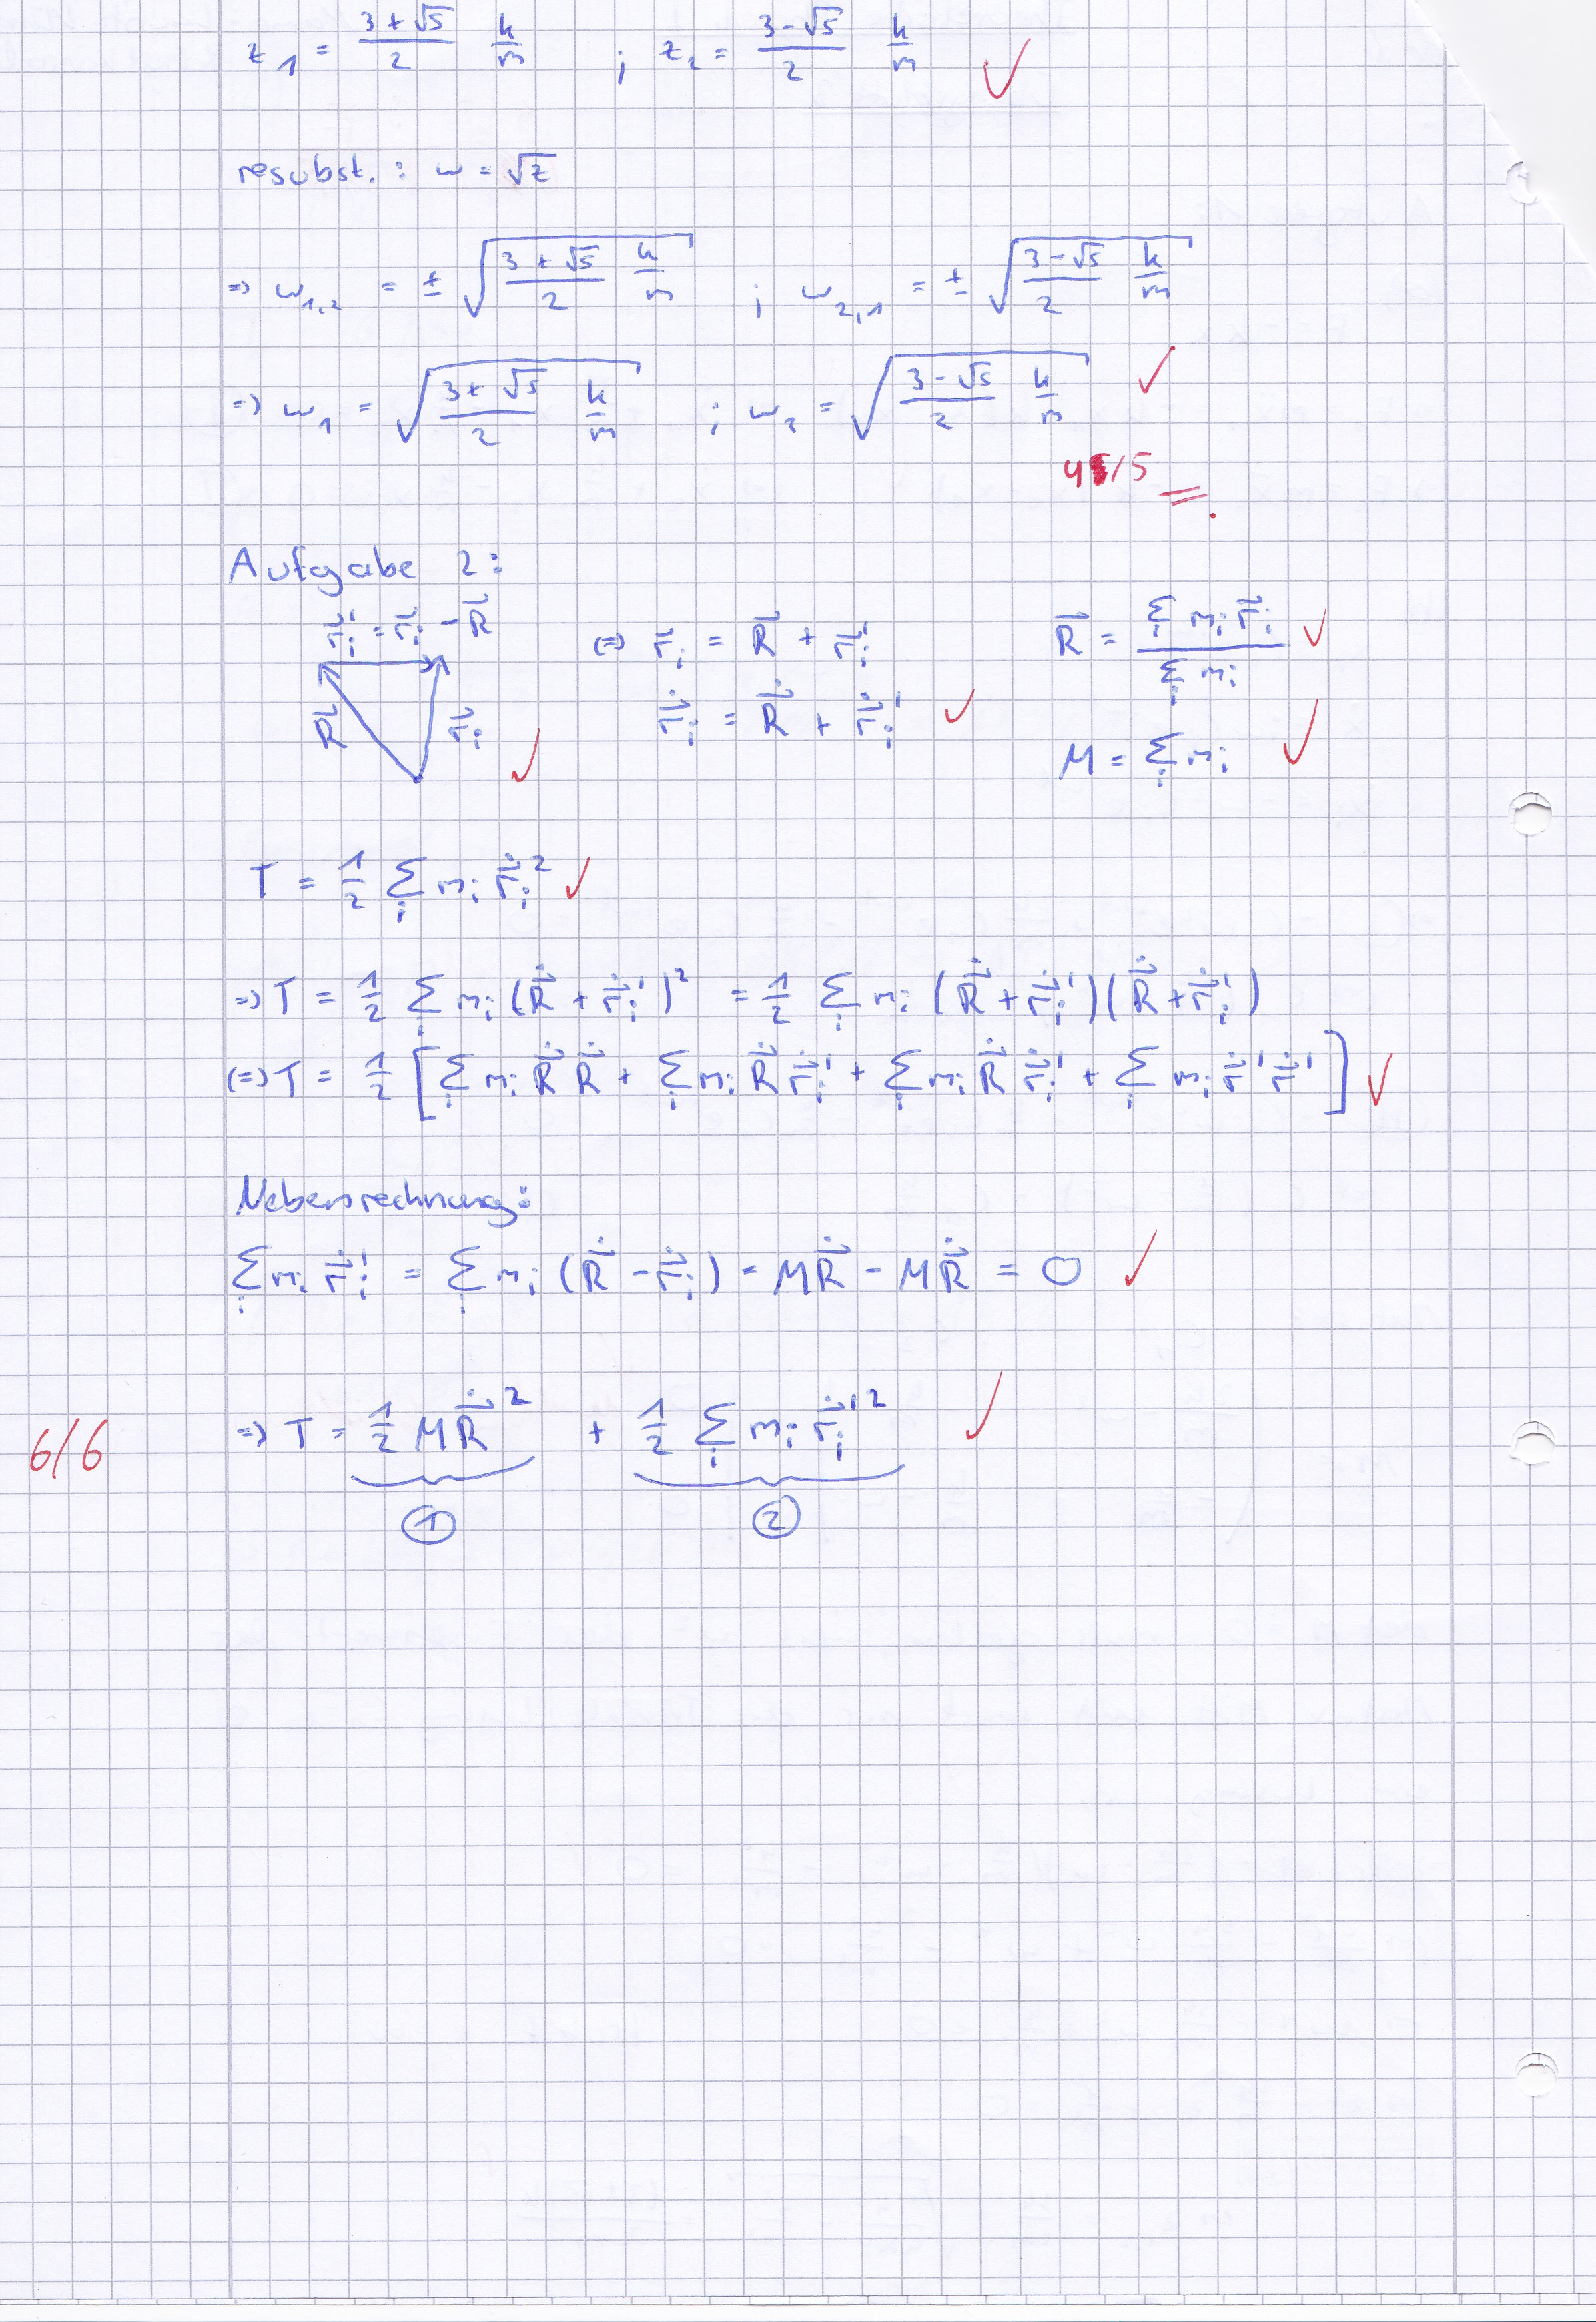 z₁ = (3+√5)/2 k/m ; z₂ = (3-√5)/2 k/m ✓
resubst.: ω = √z
=> ω₁,₂ = ± √((3+√5)/2 k/m) ; ω₂,₁ = ± √((3-√5)/2 k/m)
=> ω₁ = √((3+√5)/2 k/m) ; ω₂ = √((3-√5)/2 k/m) ✓
4/5
Aufgabe 2:
r⃗ᵢ' = r⃗ᵢ - R⃗
R⃗ r⃗ᵢ ✓
(=) r⃗ᵢ = R⃗ + r⃗ᵢ'
r⃗̇ᵢ = R⃗̇ + r⃗̇ᵢ' ✓
R⃗ = (Σᵢ mᵢ r⃗ᵢ)/(Σᵢ mᵢ) ✓
M = Σᵢ mᵢ ✓
T = 1/2 Σᵢ mᵢ r⃗̇ᵢ² ✓
=> T = 1/2 Σᵢ mᵢ (R⃗̇ + r⃗̇ᵢ')² = 1/2 Σᵢ mᵢ (R⃗̇ + r⃗̇ᵢ')(R⃗̇ + r⃗̇ᵢ')
(=) T = 1/2 [Σᵢ mᵢ R⃗̇ R⃗̇ + Σᵢ mᵢ R⃗̇ r⃗̇ᵢ' + Σᵢ mᵢ R⃗̇ r⃗̇ᵢ' + Σᵢ mᵢ r⃗̇' r⃗̇'] ✓
Nebenrechnung:
Σᵢ mᵢ r⃗̇ᵢ' = Σᵢ mᵢ (R⃗̇ - r⃗̇ᵢ) = MR⃗̇ - MR⃗̇ = 0 ✓
6/6 => T = 1/2 MR⃗̇² + 1/2 Σᵢ mᵢ r⃗̇ᵢ'² ✓
① ②